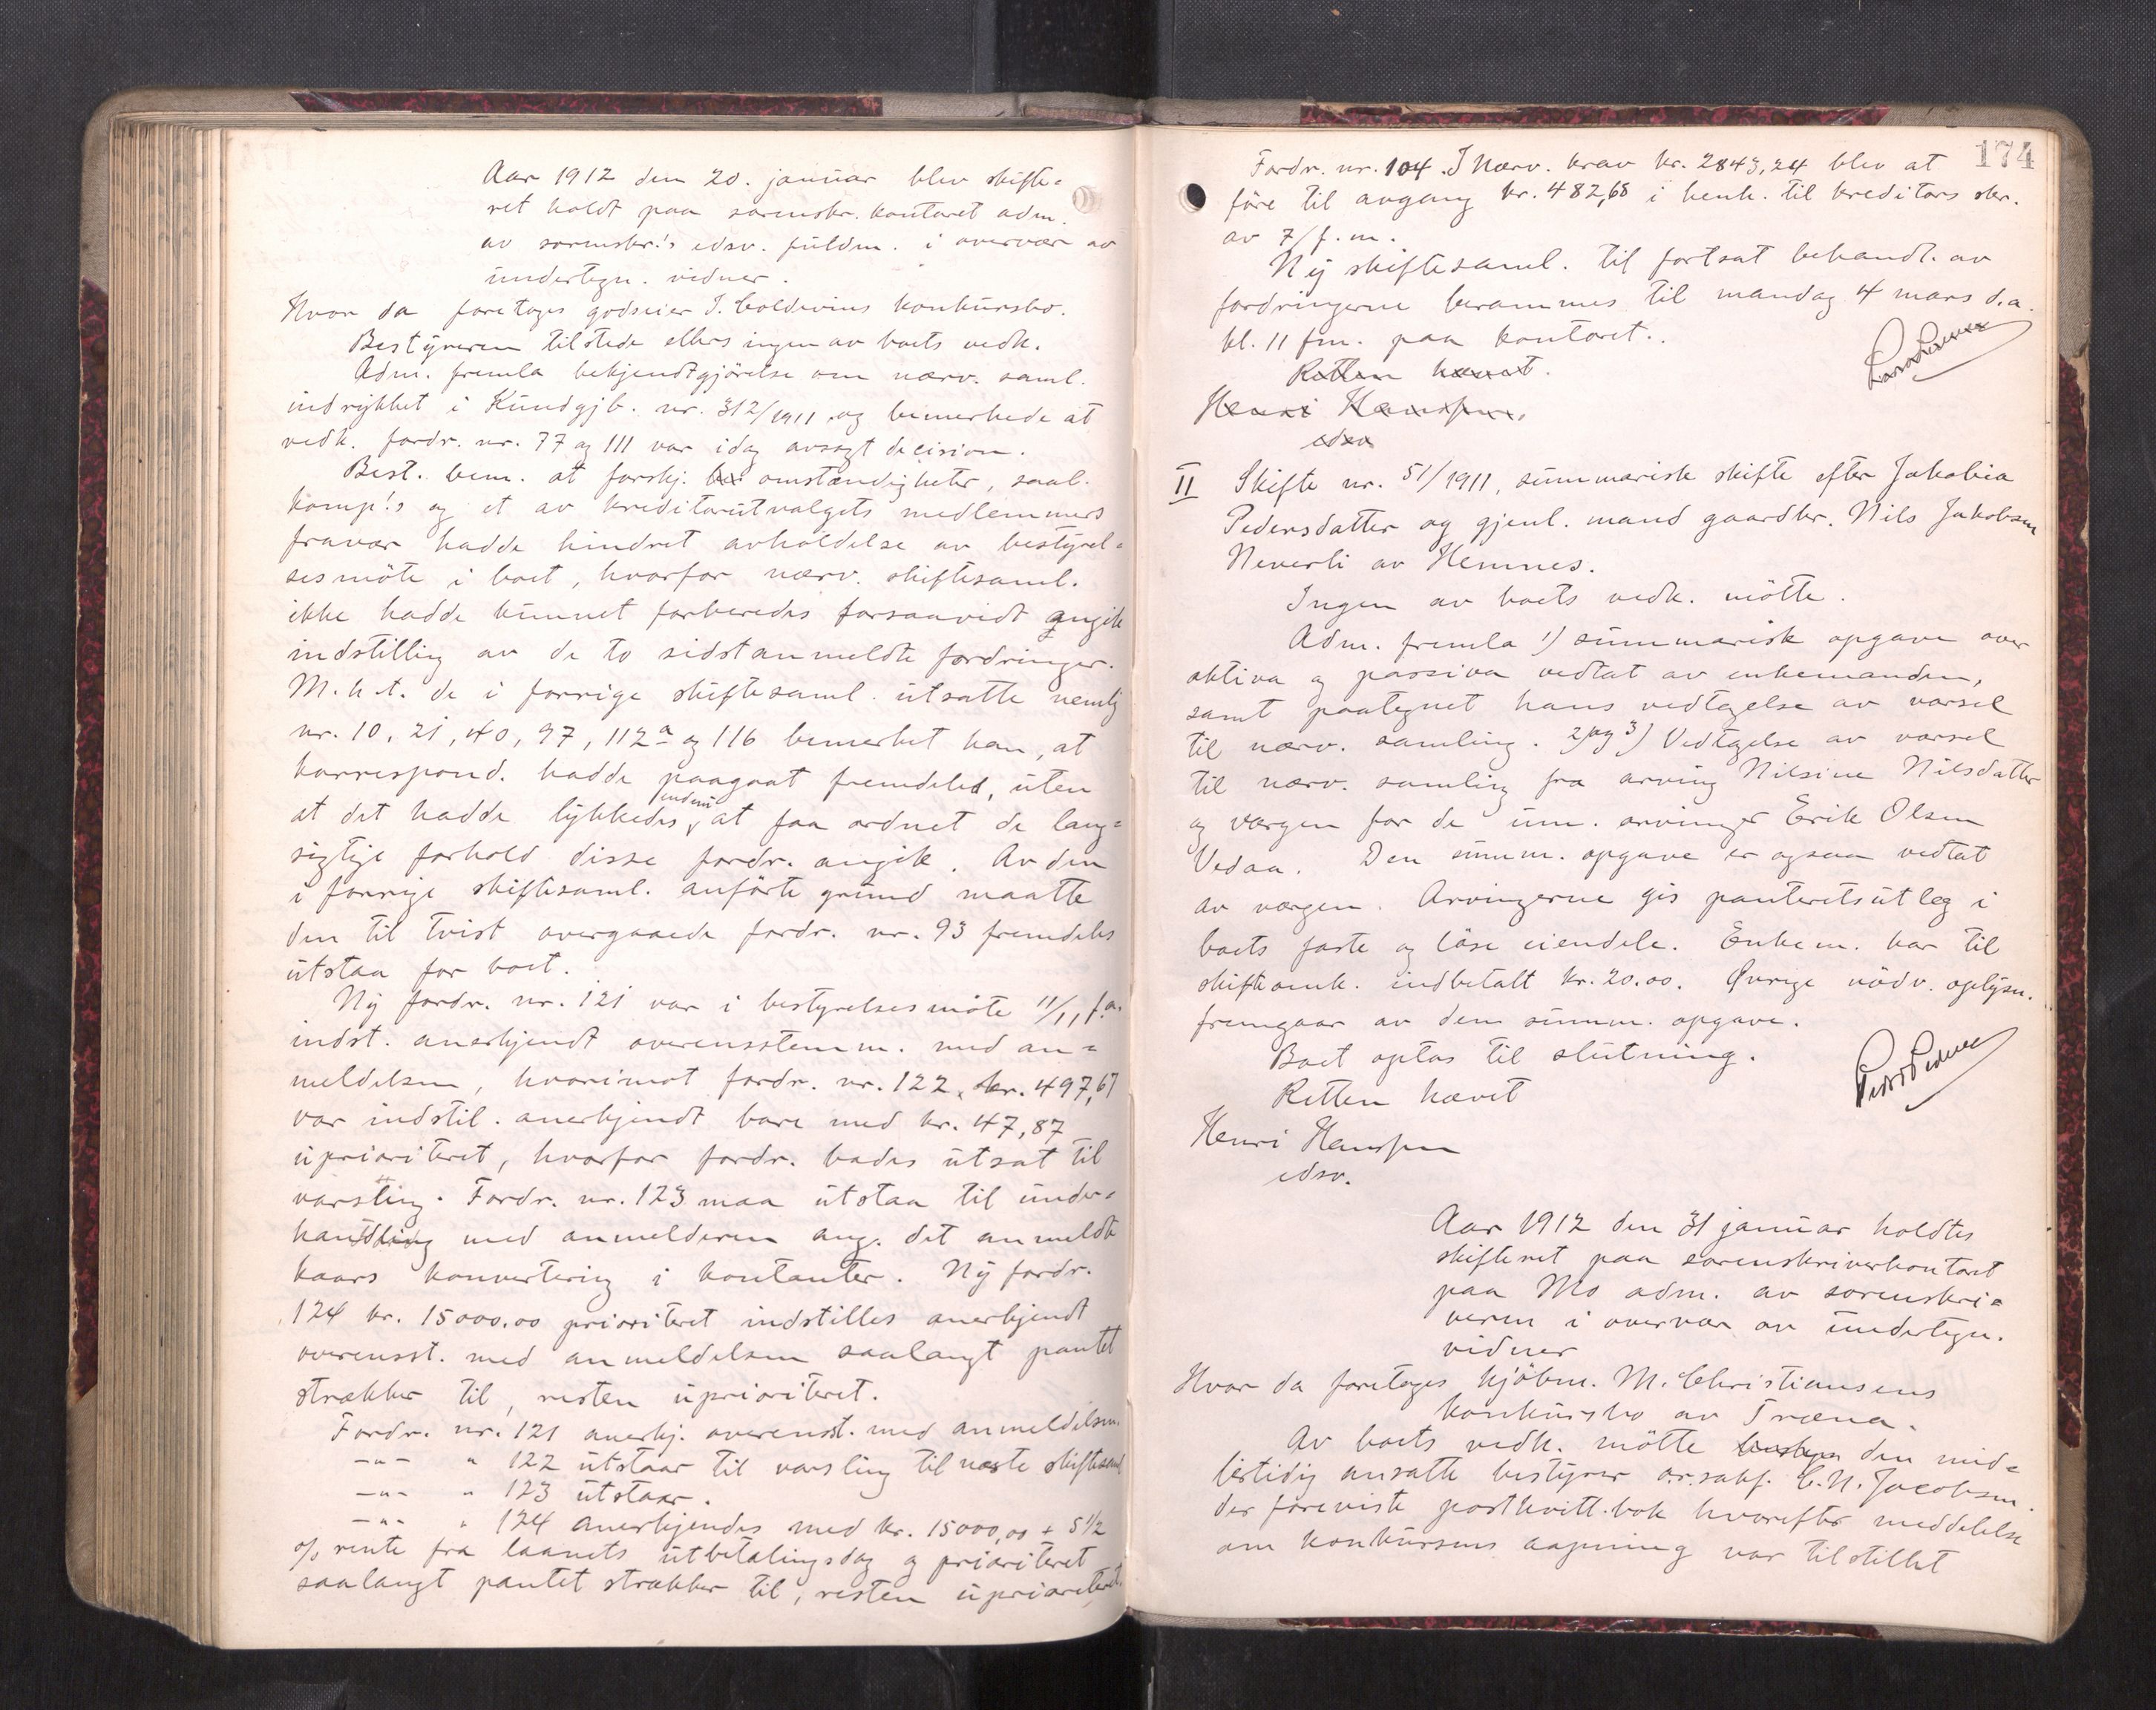 Aar 1912 den 20. januar blev skifte=
ret holdt paa sorenskr. kontoret adm.
av sorenskr.'s edsv. fuldm. i overvær av
undertegn. vidner.
Hvor da foretoges godseier J. Coldevins konkursbo.
Bestyreren tilstede ellers ingen av boets vedk.
Adm. fremla bekjendtgjörelse om nærv. saml.
indrykket i Kundgjb. nr. 312/1911 og bemerkede at
vedk. fordr. nr. 77 og 111 var idag avsagt decision.
Best. bem. at forskj. omstændigheter, saal.
komp!s og et av kreditorutvalgets medlemmers
fravær hadde hindret avholdelse av bestyrel=
sesmöte i boet, hvorfor nærv. skiftesaml.
ikke hadde kunnet forberedes forsaavidt angik
indstilling av de to sidstanmeldte fordringer.
M.h.t. de i forrige skiftesaml. utsatte nemlig
nr. 10, 21, 40, 97, 112a og 116 bemerket han, at
korrespond. hadde paagaat fremdeles, uten
at det hadde lykkedes endnu at faa ordnet de lang=
sigtige forhold disse fordr. angik. Av den
i forrige skiftesaml. anförte grund maatte
den til tvist overgaaede fordr. nr. 93 fremdeles
utstaa for boet.
Ny fordr. nr. 121 var i bestyrelsesmöte 11/11 f.a.
indst. anerkjendt overensstemm. med an=
meldelsen, hvorimot fordr. nr. 122, kr. 497,67
var indstil. anerkjendt bare med kr. 47,87
uprioritert, hvorfor fordr. bades utsat til
varsling. Fordr. nr. 123 maa utstaa til under=
handling med anmelderen ang. det anmeldte
kaars konvertering i kontanter. Ny fordr.
124 kr. 15000.00 prioritert indstilles anerkjendt
overensst. med anmeldelsen saalangt pantet
strækker til, resten uprioriteret.
Fordr. nr. 121 anerkj. overensst. med anmeldelsen.
—"— " 122 utstaar til varsling til næste skiftesaml
—"— " 123 utstaar.
—"— " 124 anerkjendes med kr. 15000,00 + 5 1/2
% rente fra laanets utbetalingsdag og prioriteret
saalangt pantet strækker til, resten uprioriteret.
174
Fordr. nr. 104. I nærv. krav kr. 2843,24 blev at
före til avgang kr. 482,68 i henh. til kreditors skr.
av 7/ f.m.
Ny skiftesaml. til fortsat behandl. av
fordringerne berammes til mandag 4 mars d.a.
kl. 11 fm. paa kontoret..
Retten hævet.
Henri Hanssen,
edsv
II Skifte nr. 51/1911, summarisk skifte efter Jakobia
Pedersdatter og gjenl. mand gaardbr. Nils Jakobsen
Neverli av Hemnes.
Ingen av boets vedk. mötte.
Adm. fremla 1) summarisk opgave over
aktiva og passiva vedtat av enkemanden,
samt paategnet hans vedtagelse av varsel
til nærv. samling. 2) og 3) Vedtagelse av varsel
til nærv. samling fra arving Nilsine Nilsdatter
og værgen for de um. arvinger Erik Olsen
Vedaa. Den summ. opgave er ogsaa vedtat
av værgen. Arvingerne gis panteretsutlæg i
boets faste og löse eiendele. Enkem. har til
skifteomk. indbetalt kr. 20.00. Övrige nödv. oplysn.
fremgaar av den summ. opgave.
Boet optas til slutning.
Retten hævet
Henri Hanssen
edsv.
Aar 1912 den 31 januar holdtes
skifteret paa sorenskriverkontoret
paa Mo adm. av sorenskri=
veren i overvær av undertegn.
vidner
Hvor da foretoges kjöbm. M. Christiansens
konkursbo av Træna.
Av boets vedk. mötte den mid=
lertidig ansatte bestyrer o.r.sakf. C.N. Jacobsen.
der foreviste postkvitt.bok hvorefter meddelelse
om konkursens aapning var tilstillet